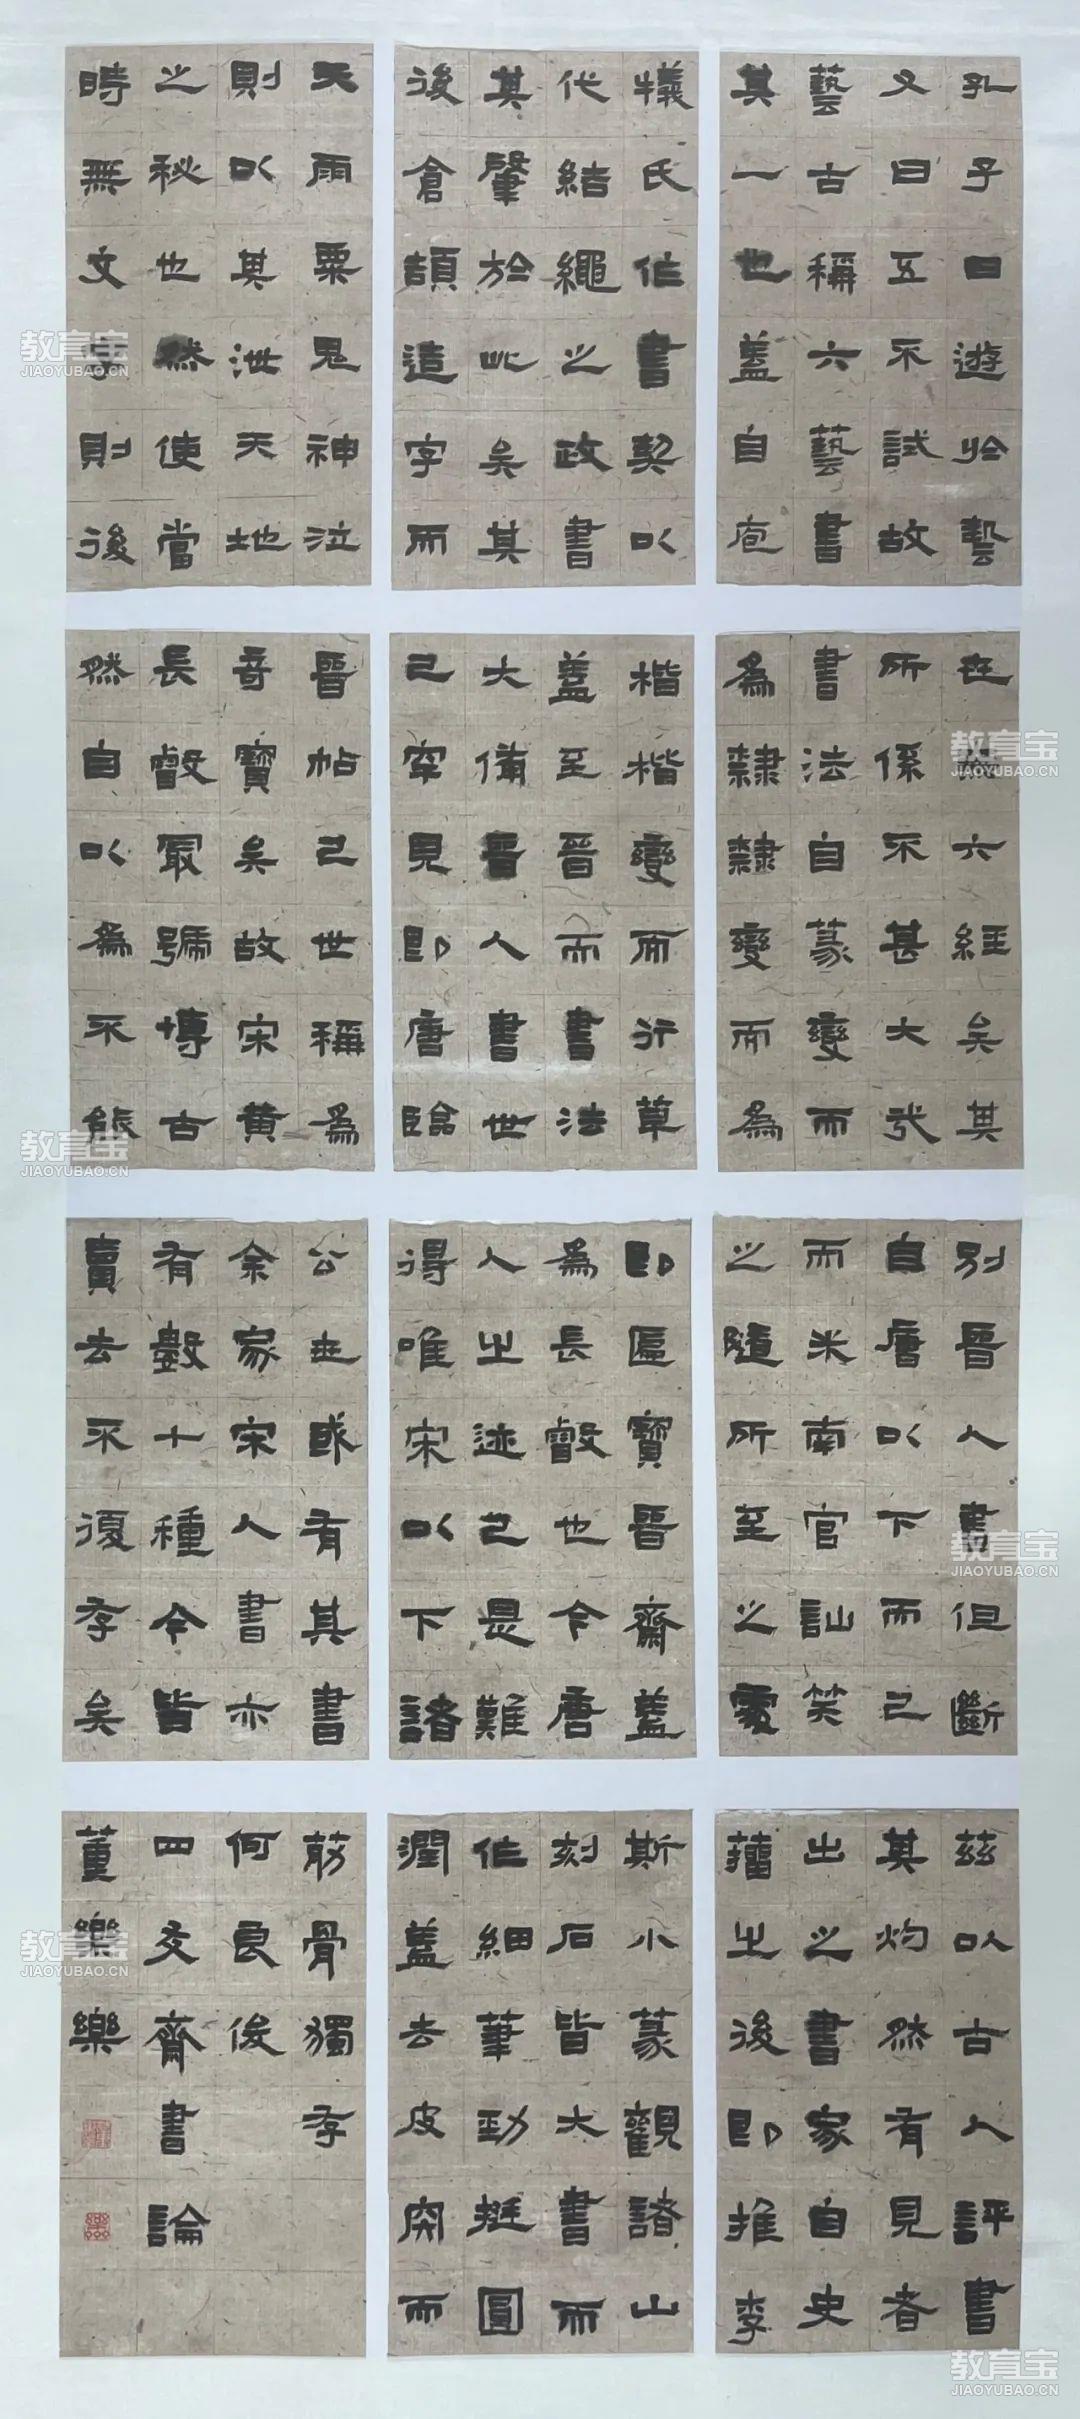 孔子曰遊於藝
又曰五不試故
藝古稱六藝書
其一也蓋自庖
犧氏作書契以
代結繩之政書
其肇於此矣其
後倉頡造字而
天雨粟鬼神泣
則以其泄天地
之秘也然使當
時無文字則後
世無六經矣其
所係不甚大哉
書法自篆變而
為隸隸變而為
楷楷變而行草
蓋至晉而書法
大備晉人書世
已罕見即唐臨
晉帖已世稱為
奇寶矣故宋黃
長睿最號博古
然自以為不能
別晉人書但斷
自唐以下而已
而米南宮訕笑
之隨所至之處
即匾寶晉齋蓋
為長睿也今唐
人之迹已是難
得唯宋以下諸
公世或有其書
余家宋人書亦
有數十種今皆
賣去不復存矣
茲以古人評書
其灼然有見者
出之書家自史
籀之後即推李
斯小篆觀諸山
刻石皆大書而
作細筆勁挺圓
潤蓋去皮肉而
筋骨獨存
何良俊
四友齋書論
董樂樂
教育宝
JIAOYUBAO.CN
教育宝
JIAOYUBAO.CN
教育宝
JIAOYUBAO.CN
教育宝
JIAOYUBAO.CN
教育宝
JIAOYUBAO.CN
教育宝
JIAOYUBAO.CN